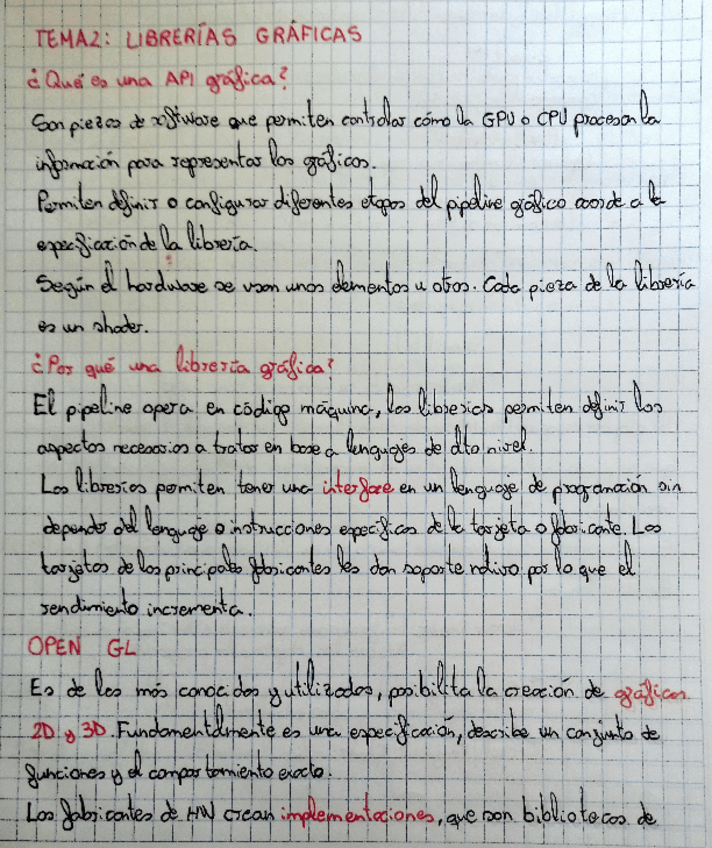 TEMA2: LIBRERÍAS GRÁFICAS
¿Qué es una API gráfica?
Son piezas de software que permiten controlar cómo la GPU o CPU procesan la
información para representar los gráficos.
Permiten definir o configurar diferentes etapas del pipeline gráfico acorde a la
especificación de la librería.
Según el hardware se usan unos elementos u otros. Cada pieza de la librería
es un shader.
¿Por qué una librería gráfica?
El pipeline opera en código máquina, las librerias permiten definir los
aspectos necesarios a tratar en base a lenguajes de alto nivel.
Las librerias permiten tener una interface en un lenguaje de programación sin
depender del lenguaje o instrucciones especificas de la tarjeta o fabricante. Las
tarjetas de los principales fabricantes les dan soporte nativo por lo que el
rendimiento incrementa.
OPEN GL
Es de las más conocidas y utilizadas, posibilita la creación de gráficos
2D y 3D. Fundamentalmente es una especificación, describe un conjunto de
funciones y el comportamiento exacto.
Los fabricantes de HW crean implementaciones, que son bibliotecas de